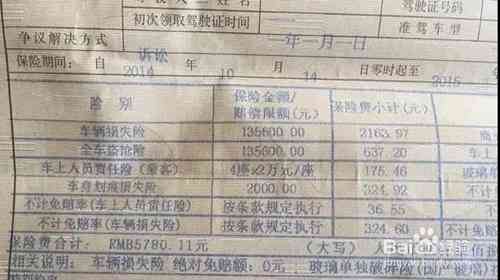 驾驶证号码
初次领取驾驶证时间 准驾车型
争议解决方式 诉讼 一年一月一日
保险期间：自 2014 年 10 月 14 日零时起至 2015
险别 保险金额/赔偿限额(元) 保险费小计(元)
车辆损失险 135600.00 2163.97
全车盗抢险 135600.00 637.20
车上人员责任险(乘客) 4座x2万元/座 175.46 玻璃
车身划痕损失险 2000.00 324.92 不计
不计免赔率(车上人员责任险) 按条款规定执行 36.55 不计
不计免赔率(车辆损失险) 按条款规定执行 324.60 不计
保险费合计：RMB5780.11元 (大写) 人
相关说明：车辆损失险 绝对免赔额：0元 玻璃单独破碎险(国产玻璃)
Baidu经验